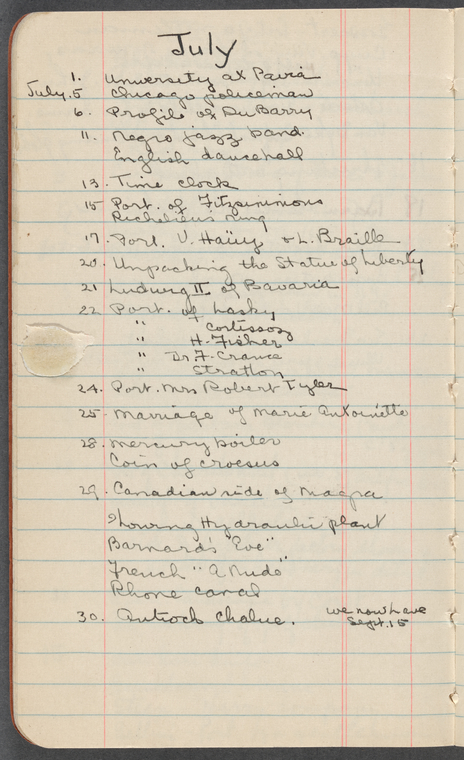 July
1. University at Pavia
July. 5 Chicago policeman
6. Profile of DuBarry
11. Negro jazz band.
English dancehall
13. Time clock
15 Port. of Fitzsimmons
Richelieu's ring
17. Port. V. Haüy & L. Braille
20. Unpacking the Statue of Liberty
21 Ludwig II of Bavaria
22 Port. of Lasky
" Cortissoz
" H. Fisher
" Dr. F. Crance
" Stratton
24. Port. Mrs Robert Tyler
25. Marriage of Marie Antoinette
28. Mercury boiler
Coin of Croesus
29. Canadian side of Niagra
Showing Hydraulic plant
Barnard's "Eve"
French "A Nude"
Rhone canal
30. Antioch Chalice. we now have
Sept. 15